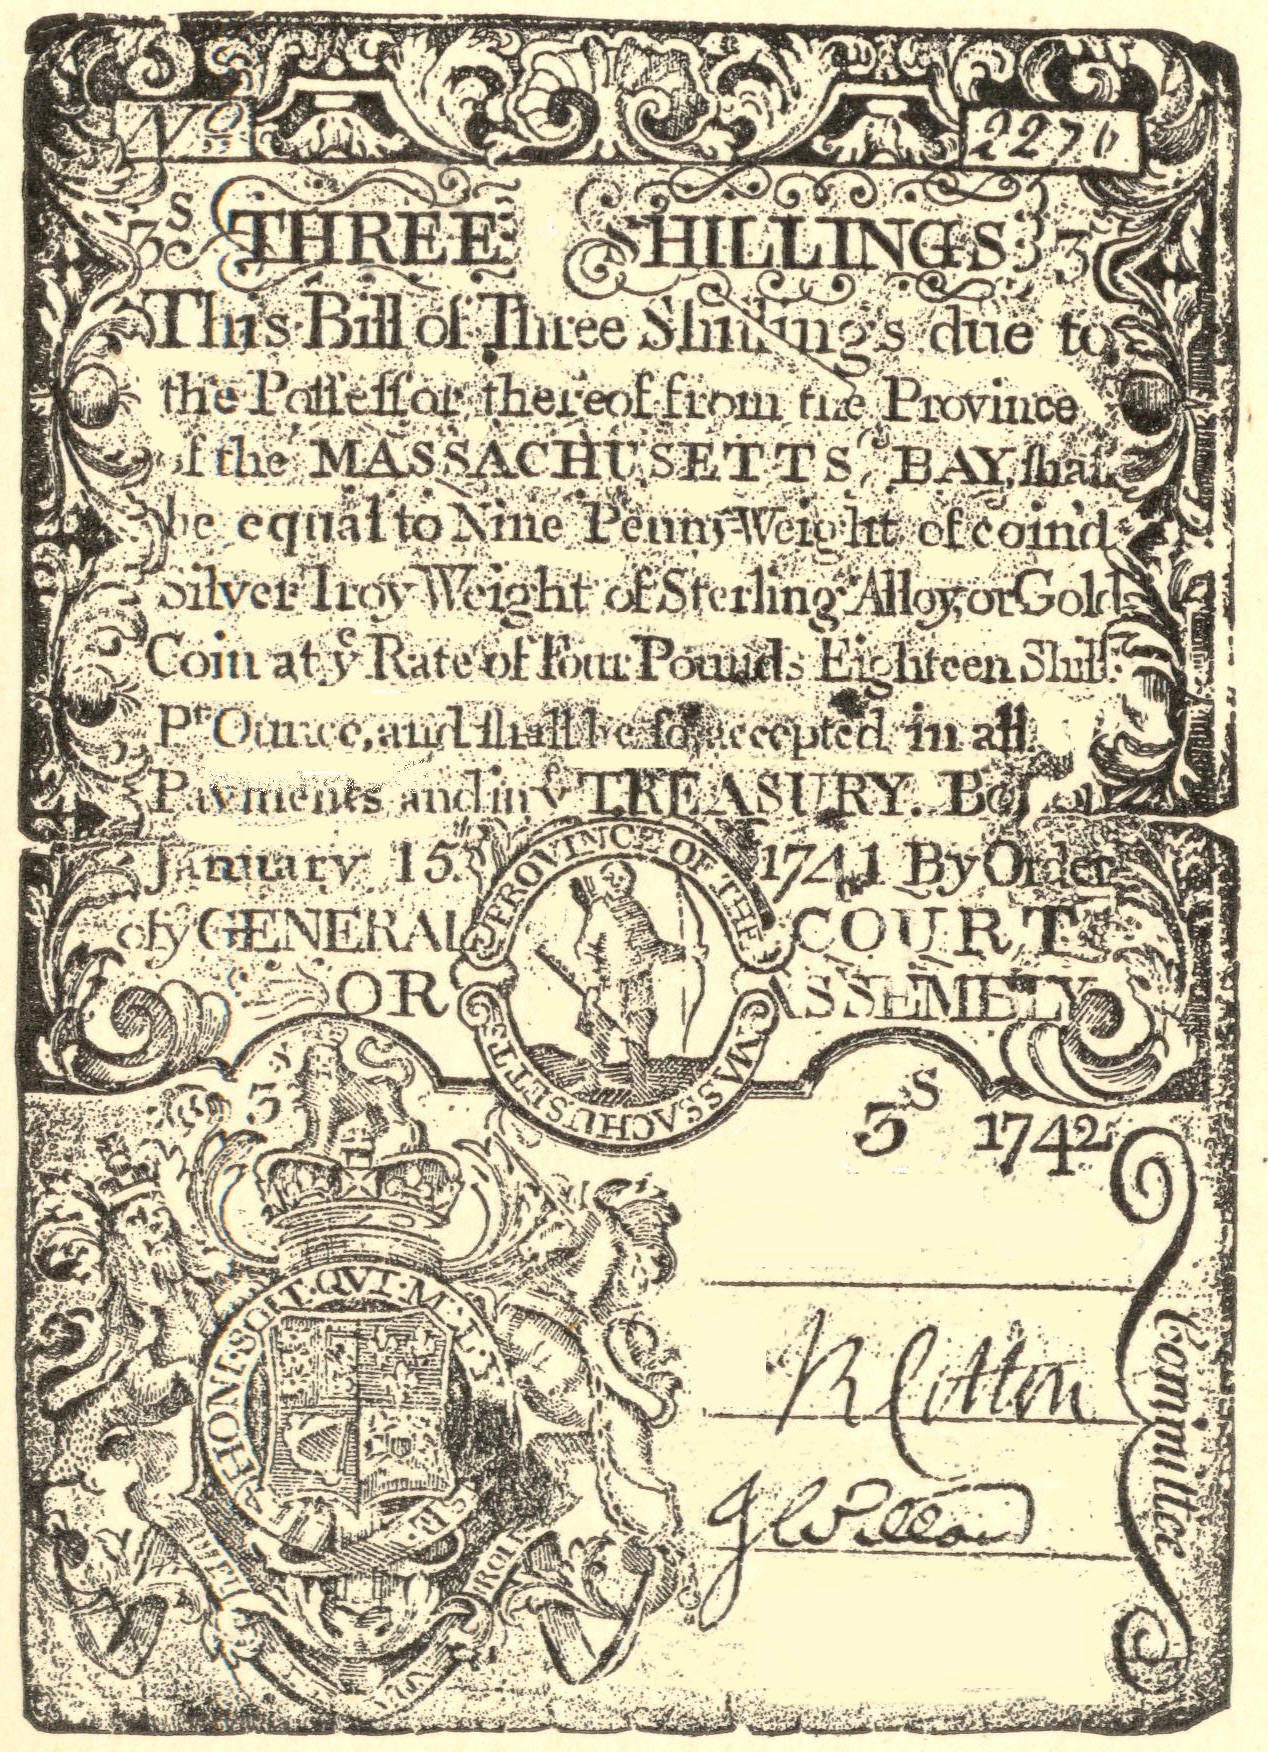 No 2276
3s THREE SHILLINGS 3s
This Bill of Three Shillings due to
the Poſſeſſor thereof from the Province
of the MASSACHUSETTS BAY, ſhal
be equal to Nine Penny-Weight of coin'd
Silver Troy Weight of Sterling Alloy, or Gold
Coin at yͤ Rate of Four Pounds Eighteen Shill:
Pr Ounce, and ſhall be ſo accepted in all
Payments and in yͤ TREASURY. Boſton
January 15. 1741 By Order
of yͤ GENERAL COURT
OR ASSEMBLY
PROVINCE OF THE
MASSACHUSETTS
3s
3s 1742
HONI·SOIT·QVI·MAL·Y
R Cotton
Committee